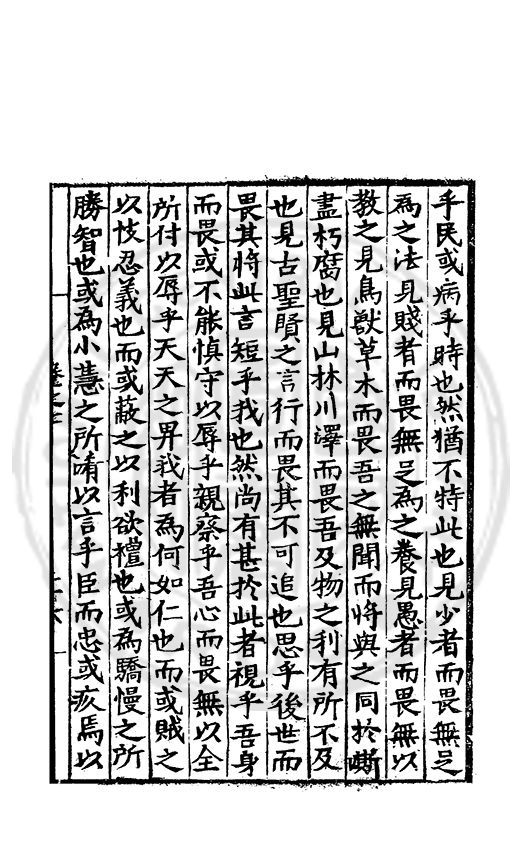 乎民或病乎時也然猶不特此也見少者而畏無足
為之法見賤者而畏無足為之養見愚者而畏無以
教之見鳥獸草木而畏吾之無聞而將與之同於澌
盡朽腐也見山林川澤而畏吾及物之利有所不及
也見古聖賢之言行而畏其不可追也思乎後世而
畏其將此言短乎我也然尚有甚於此者視乎吾身
而畏或不能慎守以辱乎親察乎吾心而畏無以全
所付以辱乎天天之畀我者為何如仁也而或賊之
以忮忍義也而或蔽之以利欲禮也或為驕慢之所
勝智也或為小慧之所㗖以言乎臣而忠或疚焉以
卷之二